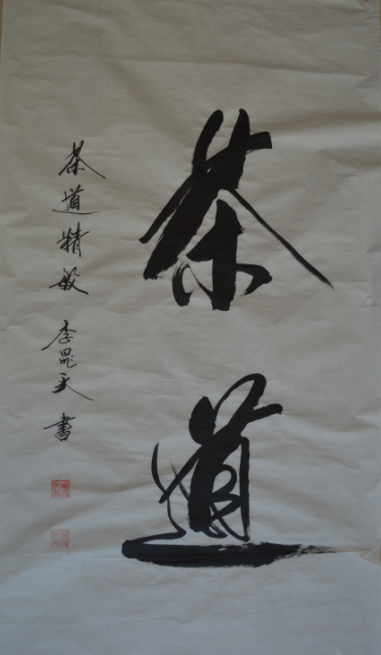 茶道
茶道精敏 李晁天 书